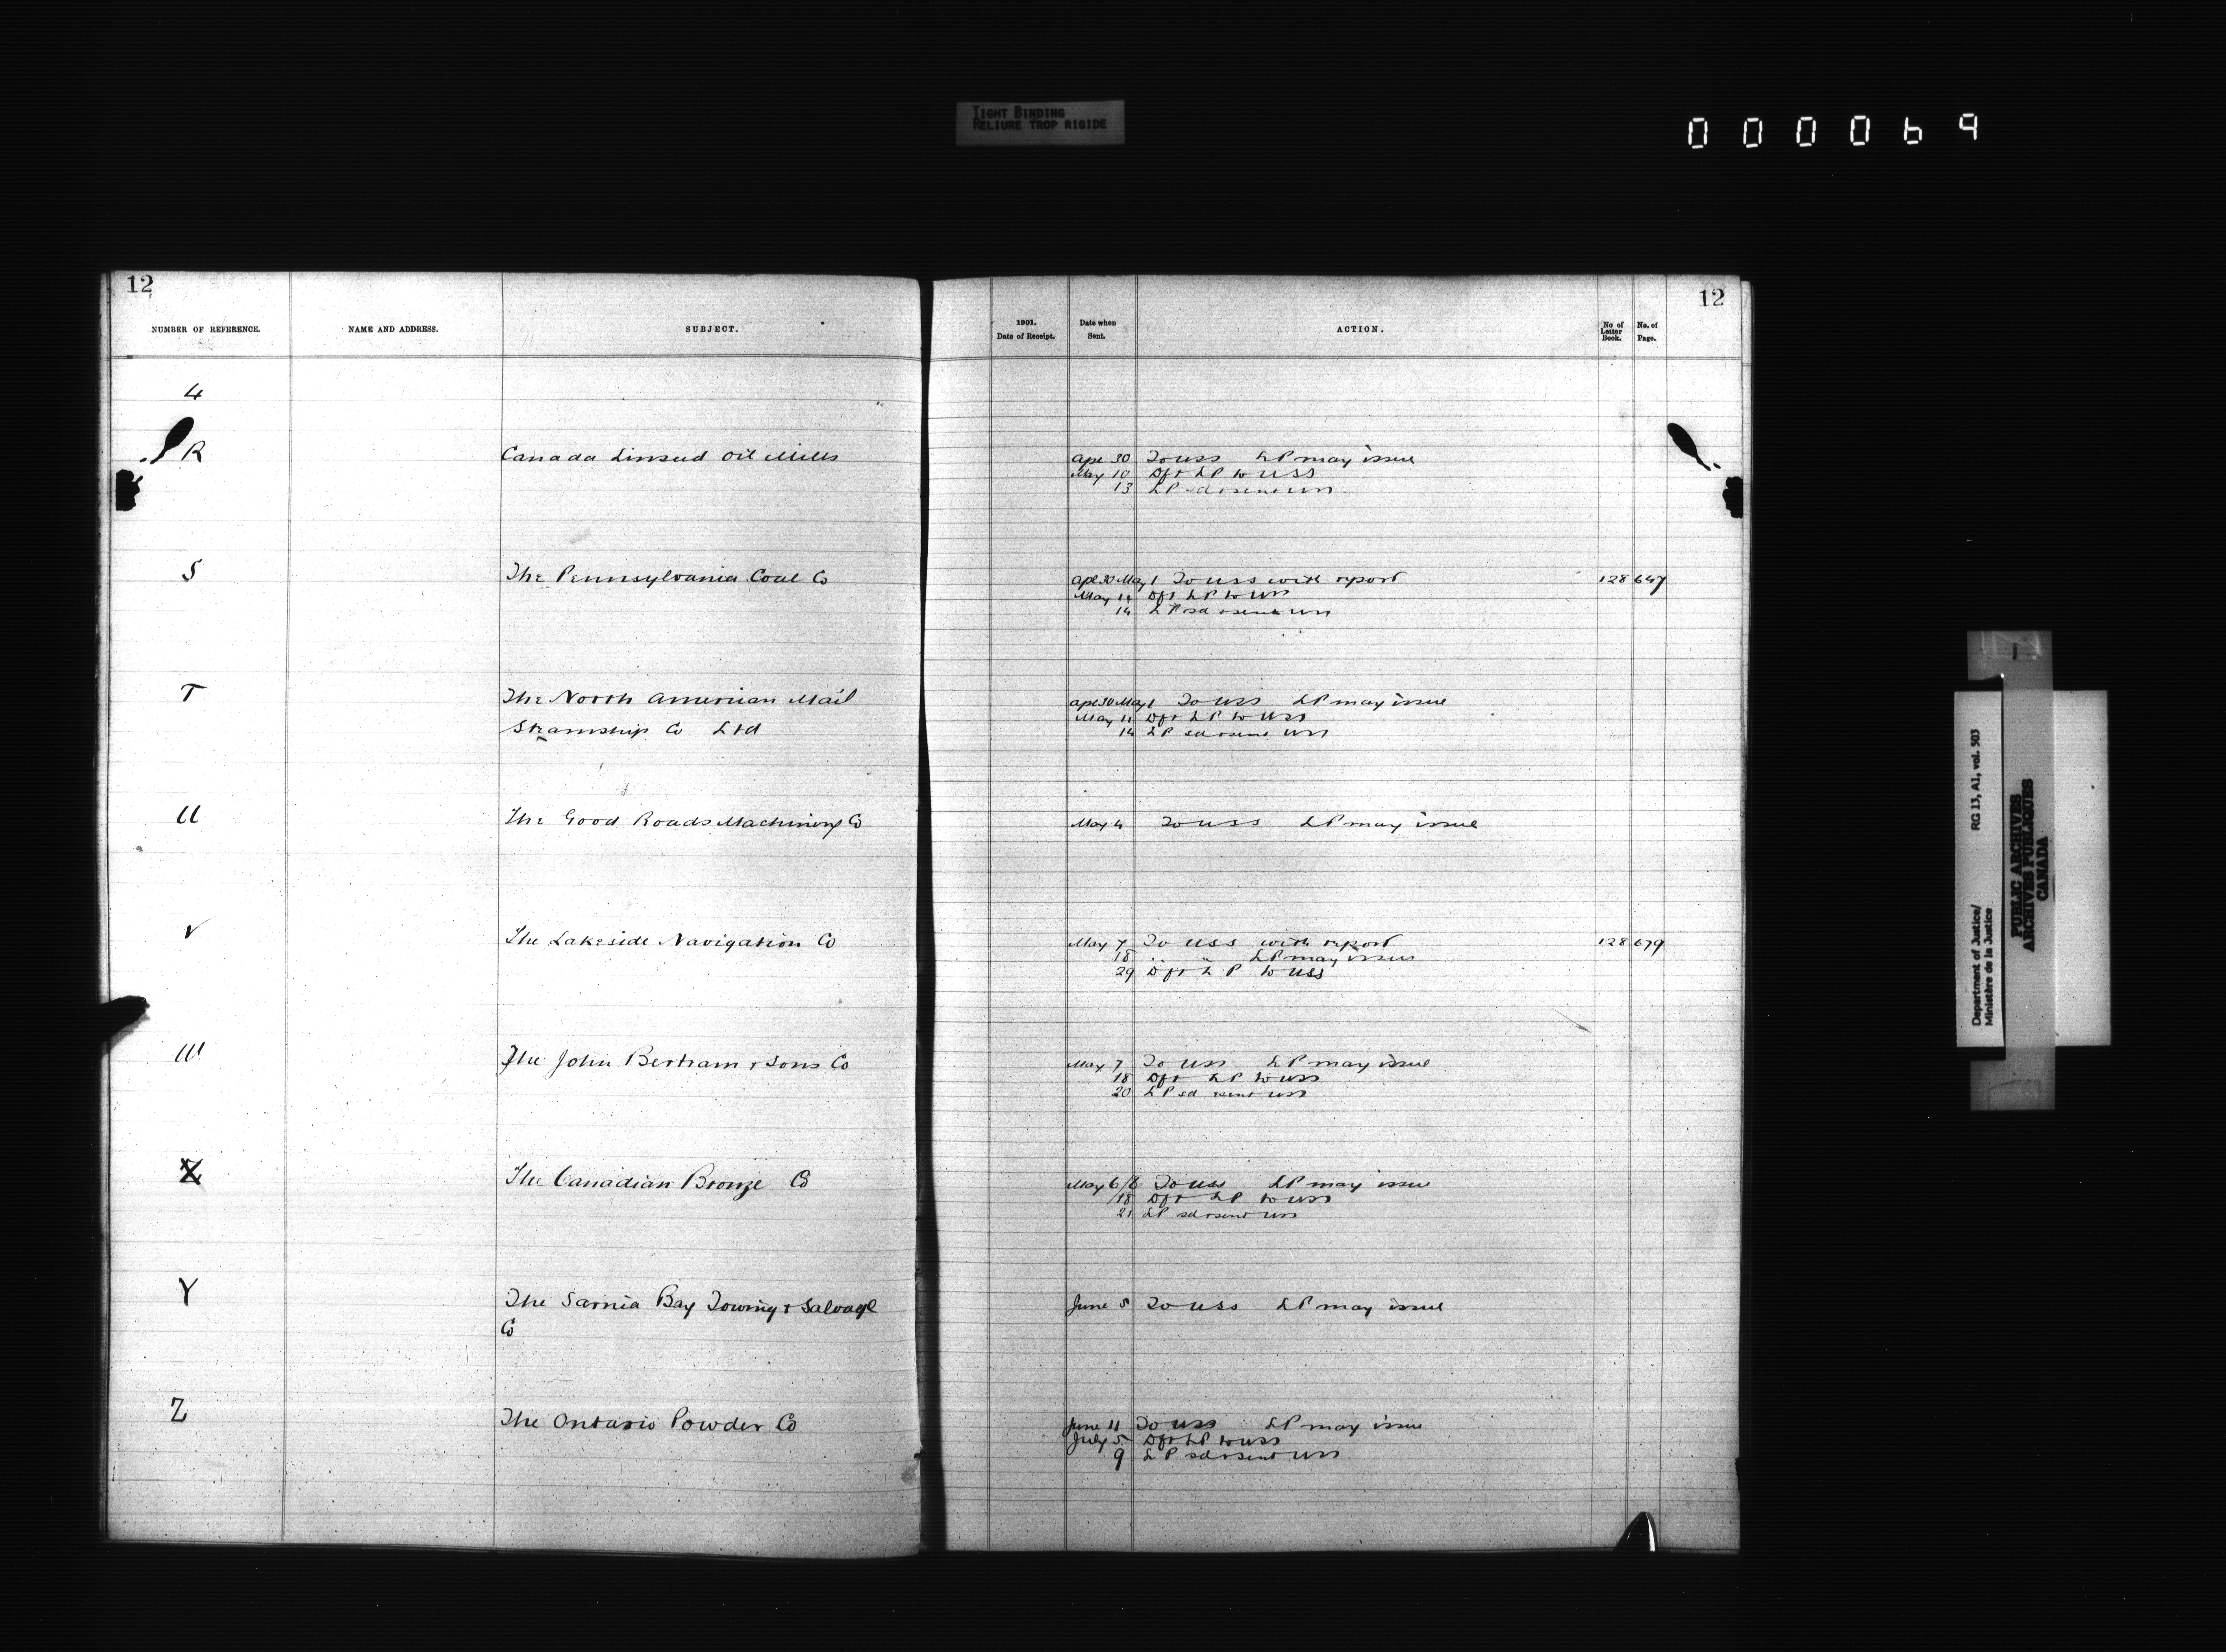 TIGHT BINDING
RELIURE TROP RIGIDE
000069
12
12
NUMBER OF REFERENCE.
NAME AND ADDRESS.
SUBJECT.
1901.
Date of Receipt.
Date when
Sent.
ACTION.
No of
Letter
Book.
No. of
Page.
4
R Canada Linseed Oil Mills
Apl 30 To USS LP may issue
May 10 Dft LP to USS
13 LP sd & sent USS
S The Pennsylvania Coal Co
Apl 30 May 1 To USS with report 128 647
May 11 Dft LP to USS
14 LP sd & sent USS
T The North American Mail
Steamship Co Ltd
Apl 30 May 1 To USS LP may issue
May 11 Dft LP to USS
14 LP sd & sent USS
U The Good Roads Machinery Co
May 4 To USS LP may issue
V The Lakeside Navigation Co
May 7 To USS with report 128 679
18 " " LP may issue
29 Dft LP to USS
W The John Bertram & Sons Co
May 7 To USS LP may issue
18 Dft LP to USS
20 LP sd & sent USS
X The Canadian Bronze Co
May 6/8 To USS LP may issue
18 Dft LP to USS
21 LP sd & sent USS
Y The Sarnia Bay Towing & Salvage
Co
June 5 To USS LP may issue
Z The Ontario Powder Co
June 11 To USS LP may issue
July 5 Dft LP to USS
9 LP sd & sent USS
Department of Justice/ RG 13, A1, vol. 503
Ministère de la Justice
PUBLIC ARCHIVES
ARCHIVES PUBLIQUES
CANADA